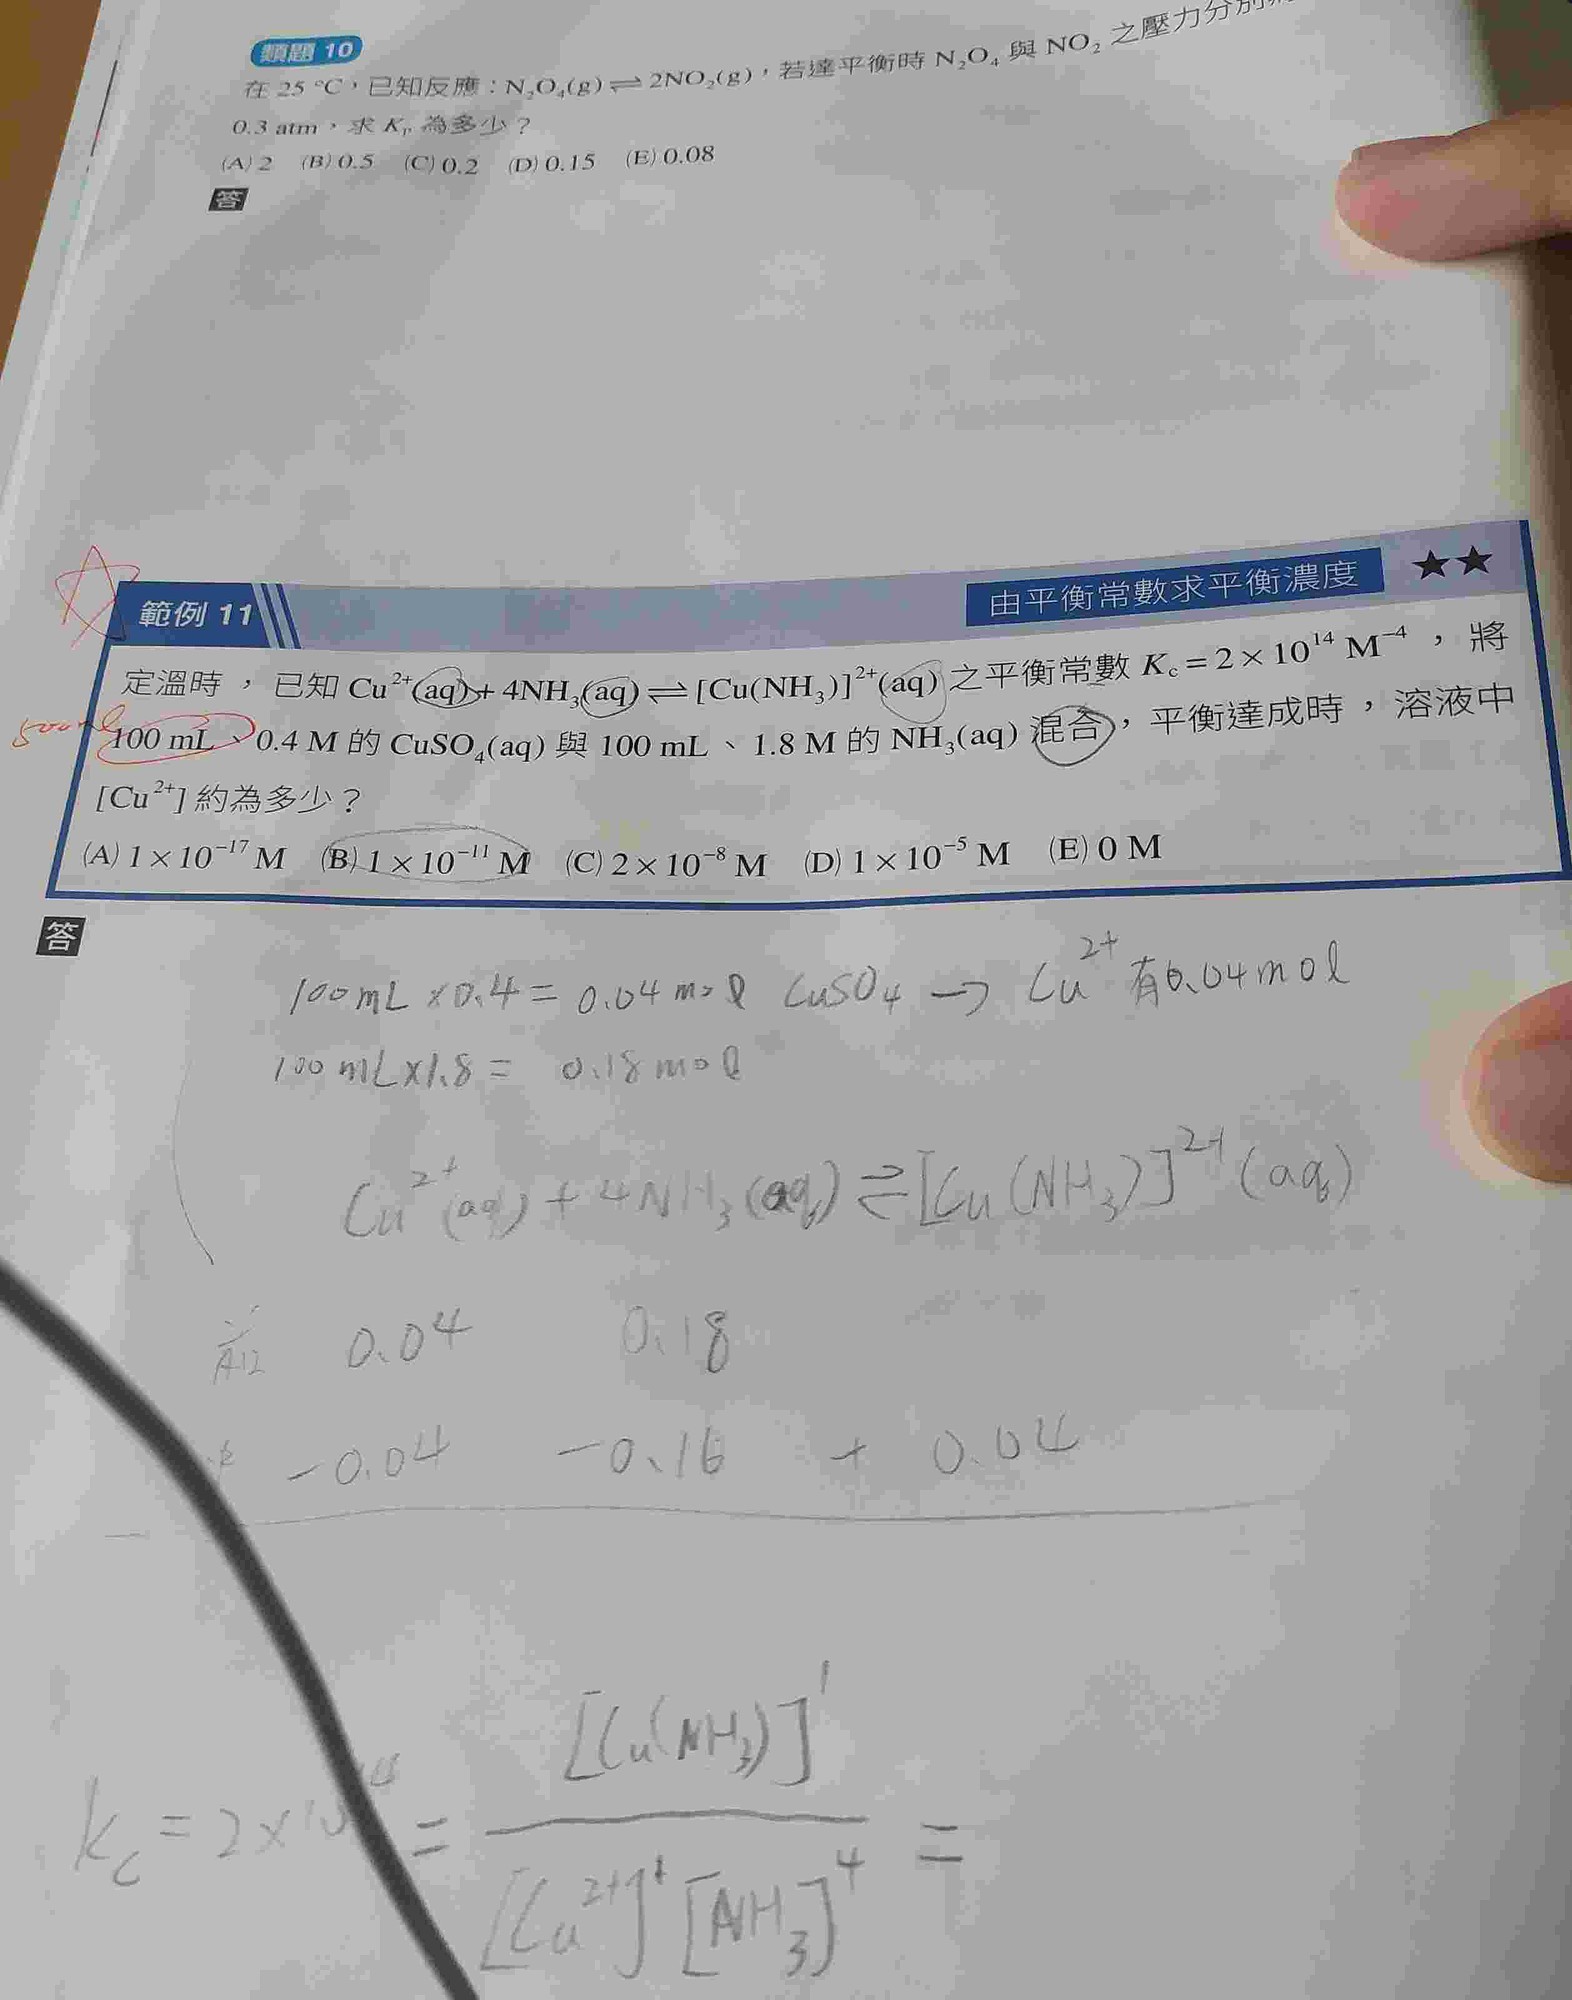 類題 10
在 25 °C，已知反應：N₂O₄(g) ⇌ 2NO₂(g)，若達平衡時 N₂O₄ 與 NO₂ 之壓力分別
0.3 atm，求 Kₚ 為多少？
(A) 2 (B) 0.5 (C) 0.2 (D) 0.15 (E) 0.08
答
範例 11 由平衡常數求平衡濃度 ★★
定溫時，已知 Cu²⁺(aq) + 4NH₃(aq) ⇌ [Cu(NH₃)]²⁺(aq) 之平衡常數 K꜀ = 2 × 10¹⁴ M⁻⁴，將
100 mL、0.4 M 的 CuSO₄(aq) 與 100 mL、1.8 M 的 NH₃(aq) 混合，平衡達成時，溶液中
[Cu²⁺] 約為多少？
(A) 1 × 10⁻¹⁷ M (B) 1 × 10⁻¹¹ M (C) 2 × 10⁻⁸ M (D) 1 × 10⁻⁵ M (E) 0 M
答
100 mL × 0.4 = 0.04 mol CuSO₄ → Cu²⁺ 有 0.04 mol
100 mL × 1.8 = 0.18 mol
Cu²⁺(aq) + 4NH₃(aq) ⇌ [Cu(NH₃)]²⁺(aq)
前 0.04 0.18
-0.04 -0.16 + 0.04
[Cu(NH₃)]¹
kc = 2×10¹⁴ = =
[Cu²⁺]¹ [NH₃]⁴